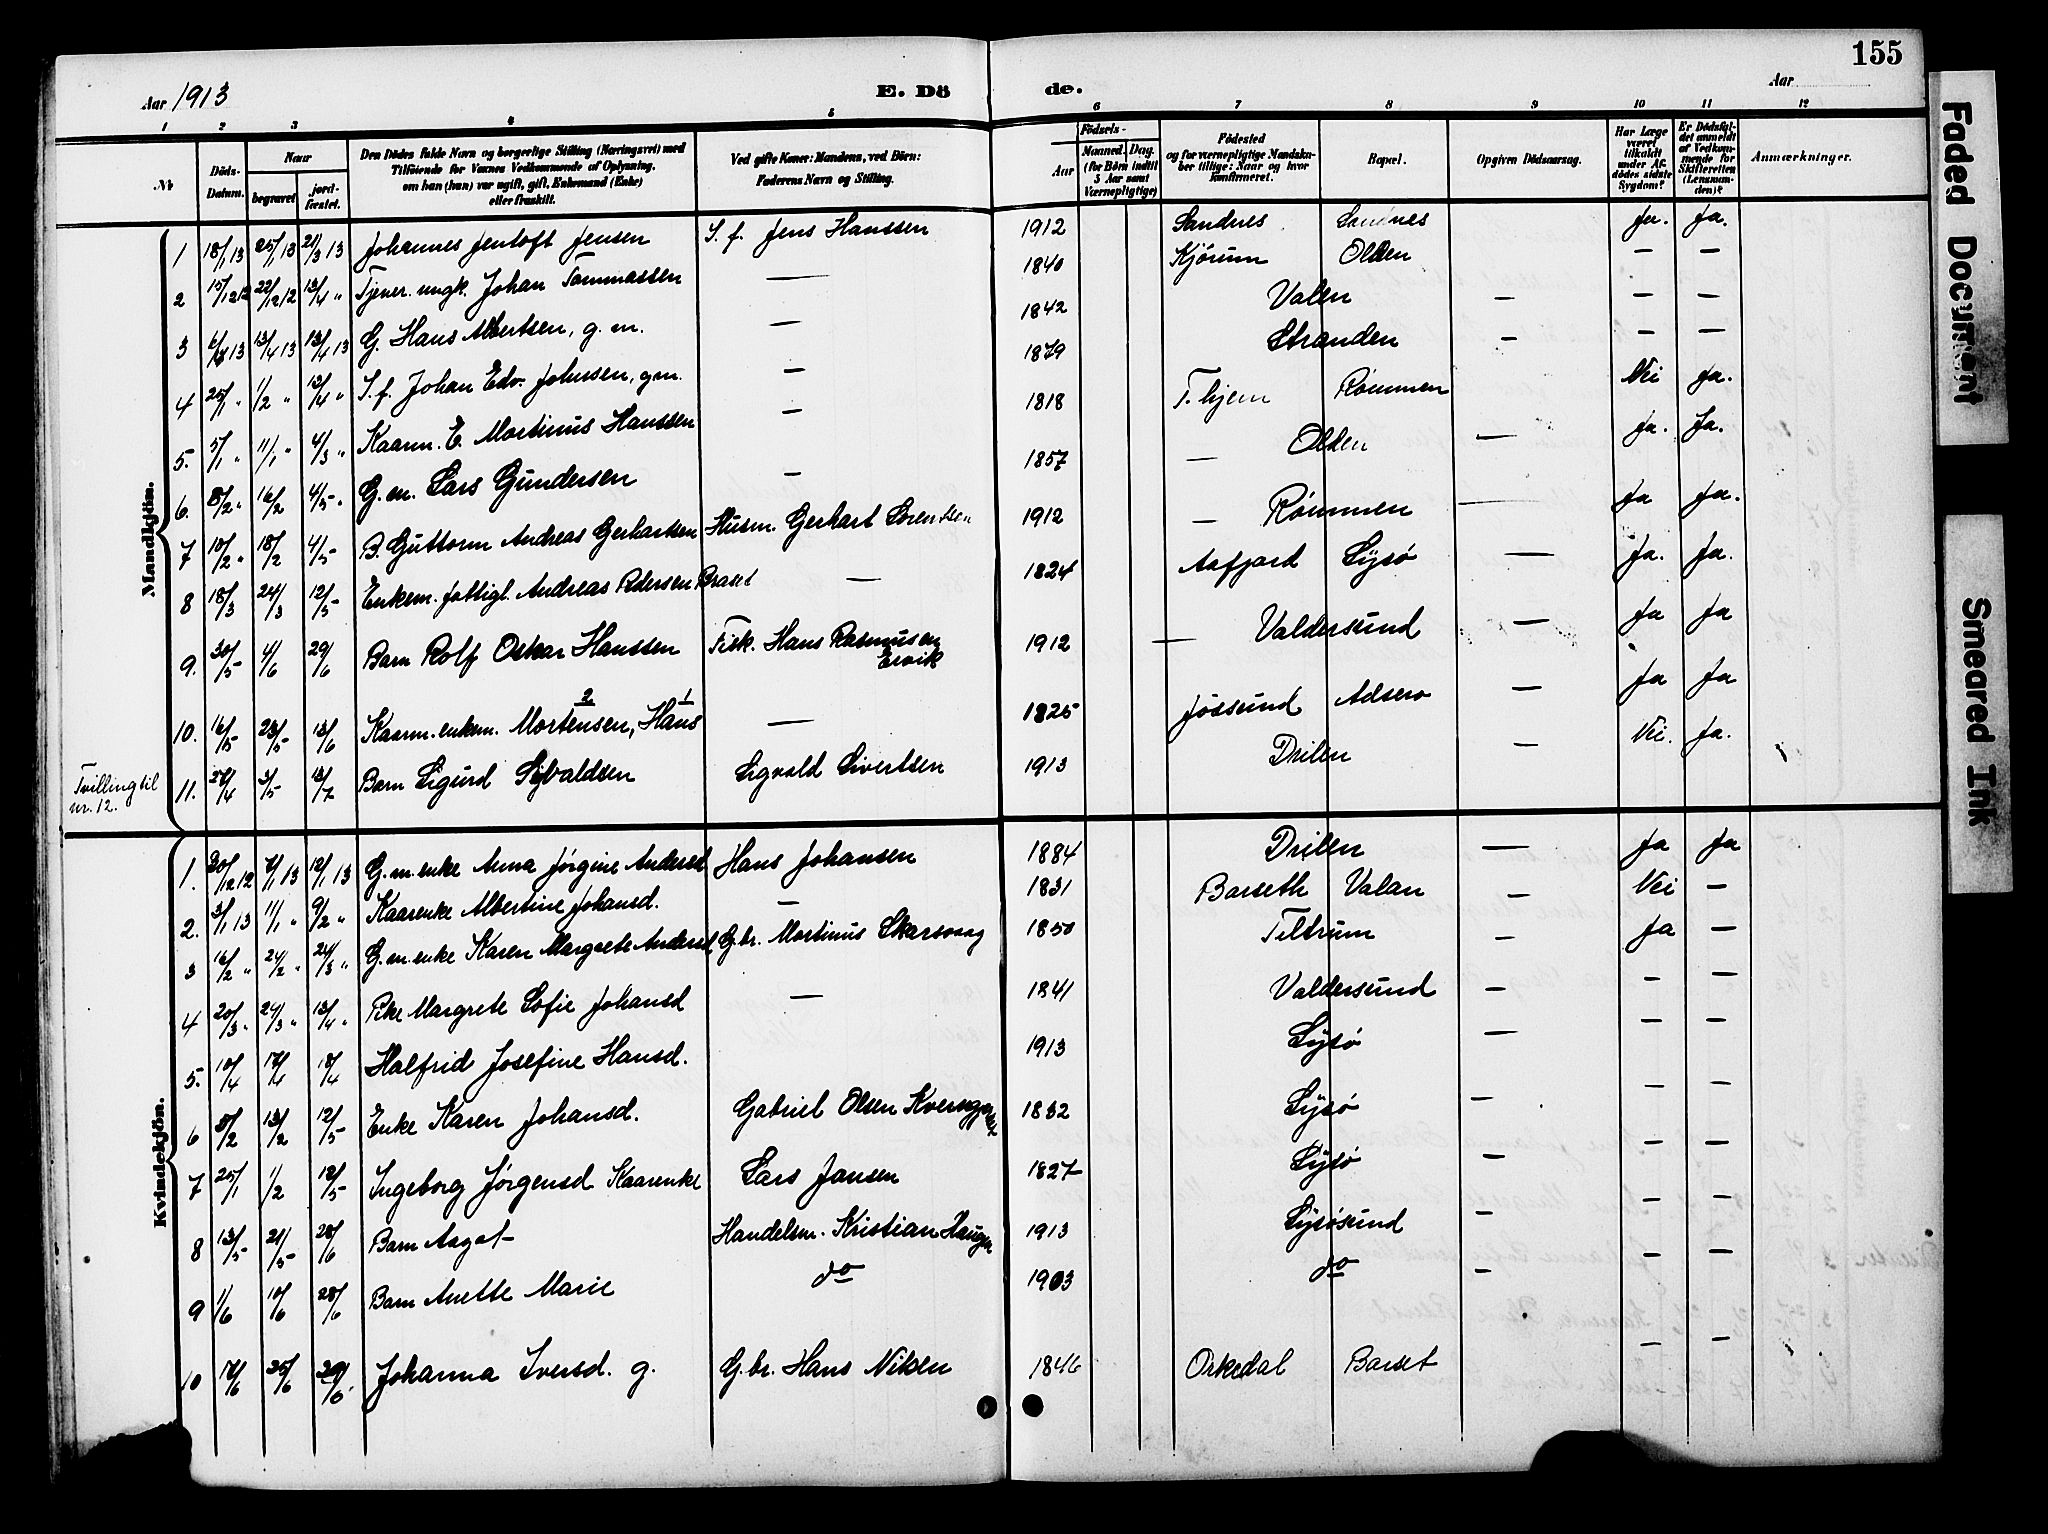 155
Aar 1913
E. Döde.
Aar
1 2 3 4 5 6 7 8 9 10 11 12
No
Döds-Datum.
Naar
begravet
jord-fæstet.
Den Dödes fulde Navn og borgerlige Stilling (Næringsvei) med
Tilföiende for Voxnes Vedkommende af Oplysning,
om han (hun) var ugift, gift, Enkemand (Enke)
eller fraskilt.
Ved gifte Koner: Mandens, ved Börn:
Faderens Navn og Stilling.
Födsels-
Aar
Maaned. Dag.
(for Börn indtil
3 Aar samt
Værnepligtige)
Födested
og for værnepligtige Mandska-
ber tillige: Naar og hvor
konfirmeret.
Bopæl.
Opgiven Dödsaarsag.
Har Læge
været
tilkaldt
under Af-
dödes sidste
Sygdom?
Er Dödsfal-
det anmeldt
af Vedkom-
mende for
Skifteretten
(Lensman-
den)?
Anmærkninger.
Mandkjön.
1 18/1 13 25/1 13 21/3 13 Johannes Jentoft Jensen S. f. Jens Hanssen 1912 Sandnes Sandnes Ja. Ja.
2 15/12 12 22/12 12 13/4 " Tjener. ungk. Johan Tommassen — 1840 Kjörum Olden — —
3 13 13/4 13 13/4 13 G. Hans Albertsen, g. m. — 1842 Valen — — —
4 25/1 " 1/2 " 13/4 " S. f. Johan Edv. Johnsen, gm. — 1879 Stranden — — —
5. 5/1 " 11/1 " 4/3 " Kaarm. E. Mortinus Hanssen — 1818 T.hjem Rømmen Nei Ja.
6. 8/2 " 16/2 4/5 " G. m. Lars Gundersen — 1857 — Olden — Ja. Ja.
7 10/2 " 18/2 4/5 B. Guttorm Andreas Gerhartsen Husm. Gerhart Sorentsen 1912 — Rømmen — Ja Ja.
8 18/3 24/3 12/5 Enkem. fattigl. Andreas Pedersen Braset — 1824 Aafjord Lysø — Ja. Ja.
9. 30/5 4/6 29/6 Barn Rolf Oskar Hanssen Fisk. Hans Rasmussen Ervik 1912 — Valdersund — Ja Ja
10. 16/5 23/5 13/6 Kaarm. enkem. Mortensen, Hans — 1825 Jøssund Adsero — Ja Ja
2 1
Tvilling til
nr. 12.
11. 27/4 3/5 13/7 Barn Sigurd Sigvaldsen Sigvald Sivertsen 1913 Drilen — Nei. Ja.
Kvindekjön.
1. 30/12 12 7/1 13 12/1 13 G. m. enke Anna Jørgine Andersd Hans Johansen 1884 Drilen — Ja Ja
2. 3/1 13 11/1 " 9/2 " Kaarenke Albertine Johansd. — 1831 Barseth Valan — Nei —
3 16/2 " 24/2 " 24/3 " G. m. enke Karen Margrete Andersd G. br. Mortinus Skarsvaag 1850 Teltrum — Ja —
4 20/3 " 24/3 " 13/4 " Pike Margrete Sofie Johansd — 1841 Valdersund — — —
5. 10/4 17/4 18/4 Halfrid Josefine Hansd. 1913 Lysø — — —
6 8/2 13/2 12/5 Enke Karen Johansd. Gabriel Olsen 1832 Lysø — — —
7 25/1 1/2 12/5 Ingeborg Jørgensd Kaarenke Lars Jansen 1827 Lysø — — —
8 13/5 21/5 28/6 Barn Aagot Handelsm. Kristian Haugen 1913 Lysøsund — — —
9 1/6 10/6 28/6 Barn Anette Marie do 1903 do — — —
10 17/6 25/6 29/6 Johanna Iversd. g. G. br. Hans Nilsen 1846 Orkedal Barset — —
Faded Document
Smeared Ink